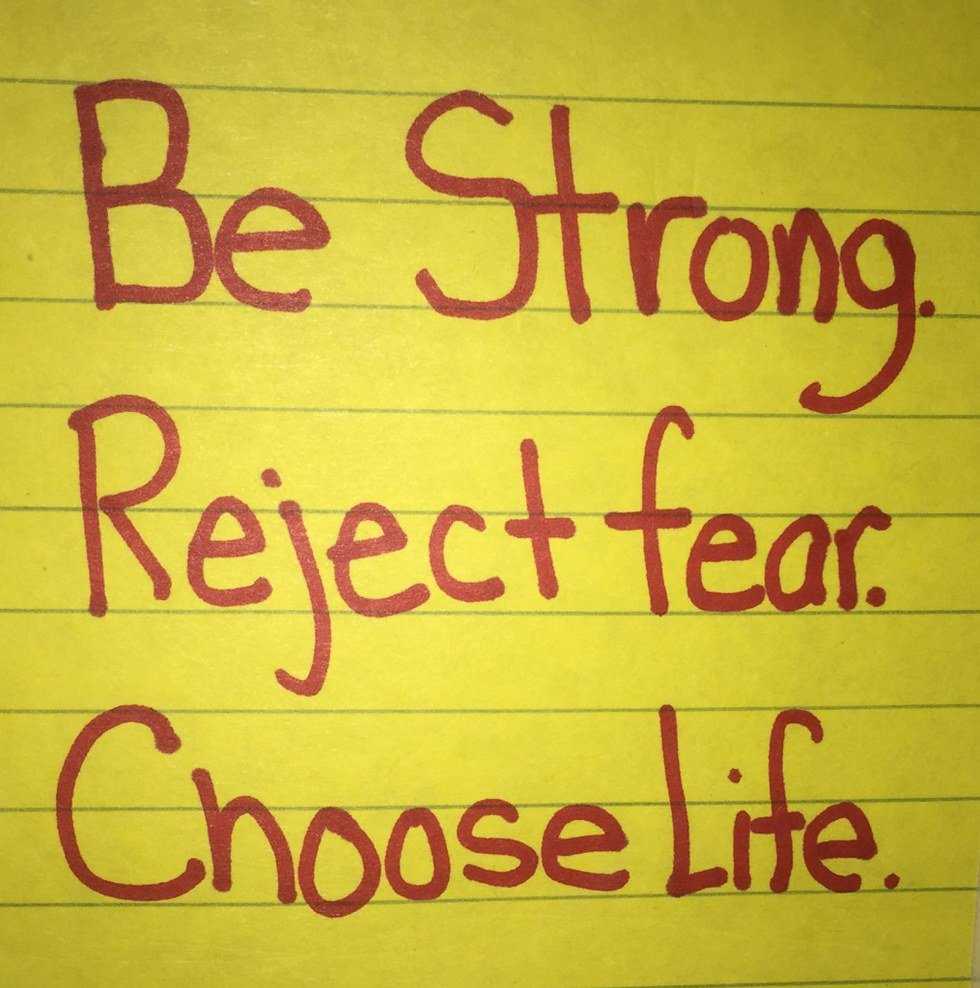 Be Strong.
Reject fear.
Choose Life.